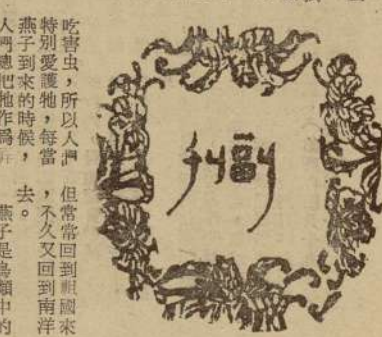 副刊
吃害虫，所以人們
特別愛護牠，每當
燕子到來的時候，
人們總把牠作爲
但常常回到祖國來
，不久又回到南洋
去。
燕子是鳥類中的